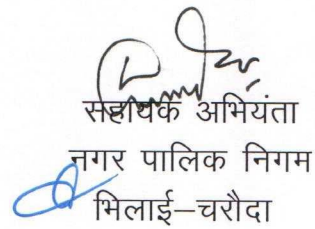 सहायक अभियंता
नगर पालिक निगम
भिलाई–चरौदा